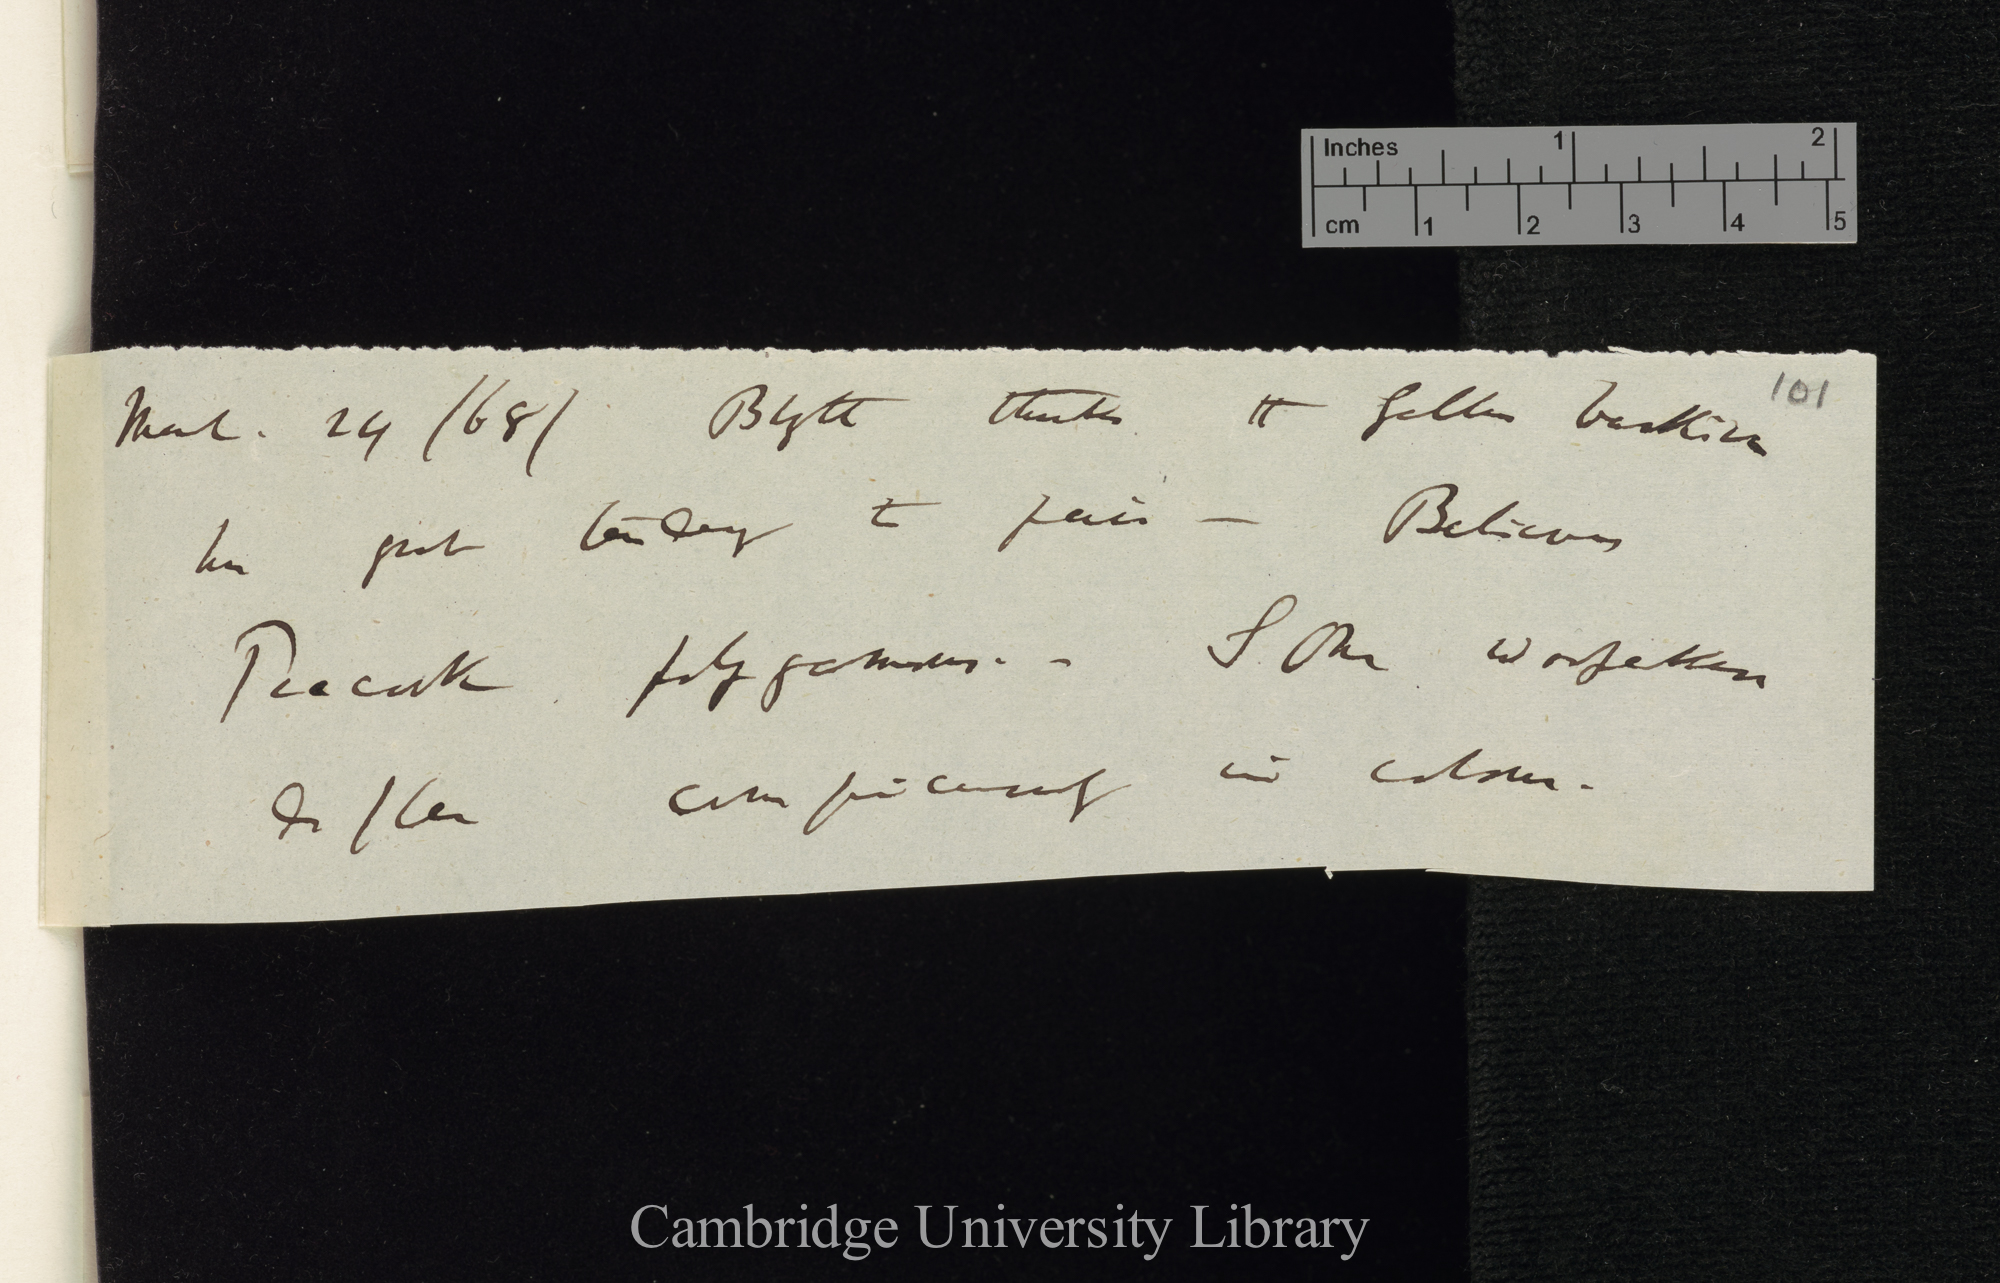 Inches 1 2
cm 1 2 3 4 5
101
March. 24 /68/ Blyth thinks tt Gallus bankiva
has great tendency to pair — Believes
Peacock polygamous. - S. The
differ conspicuously in colour.
Cambridge University Library